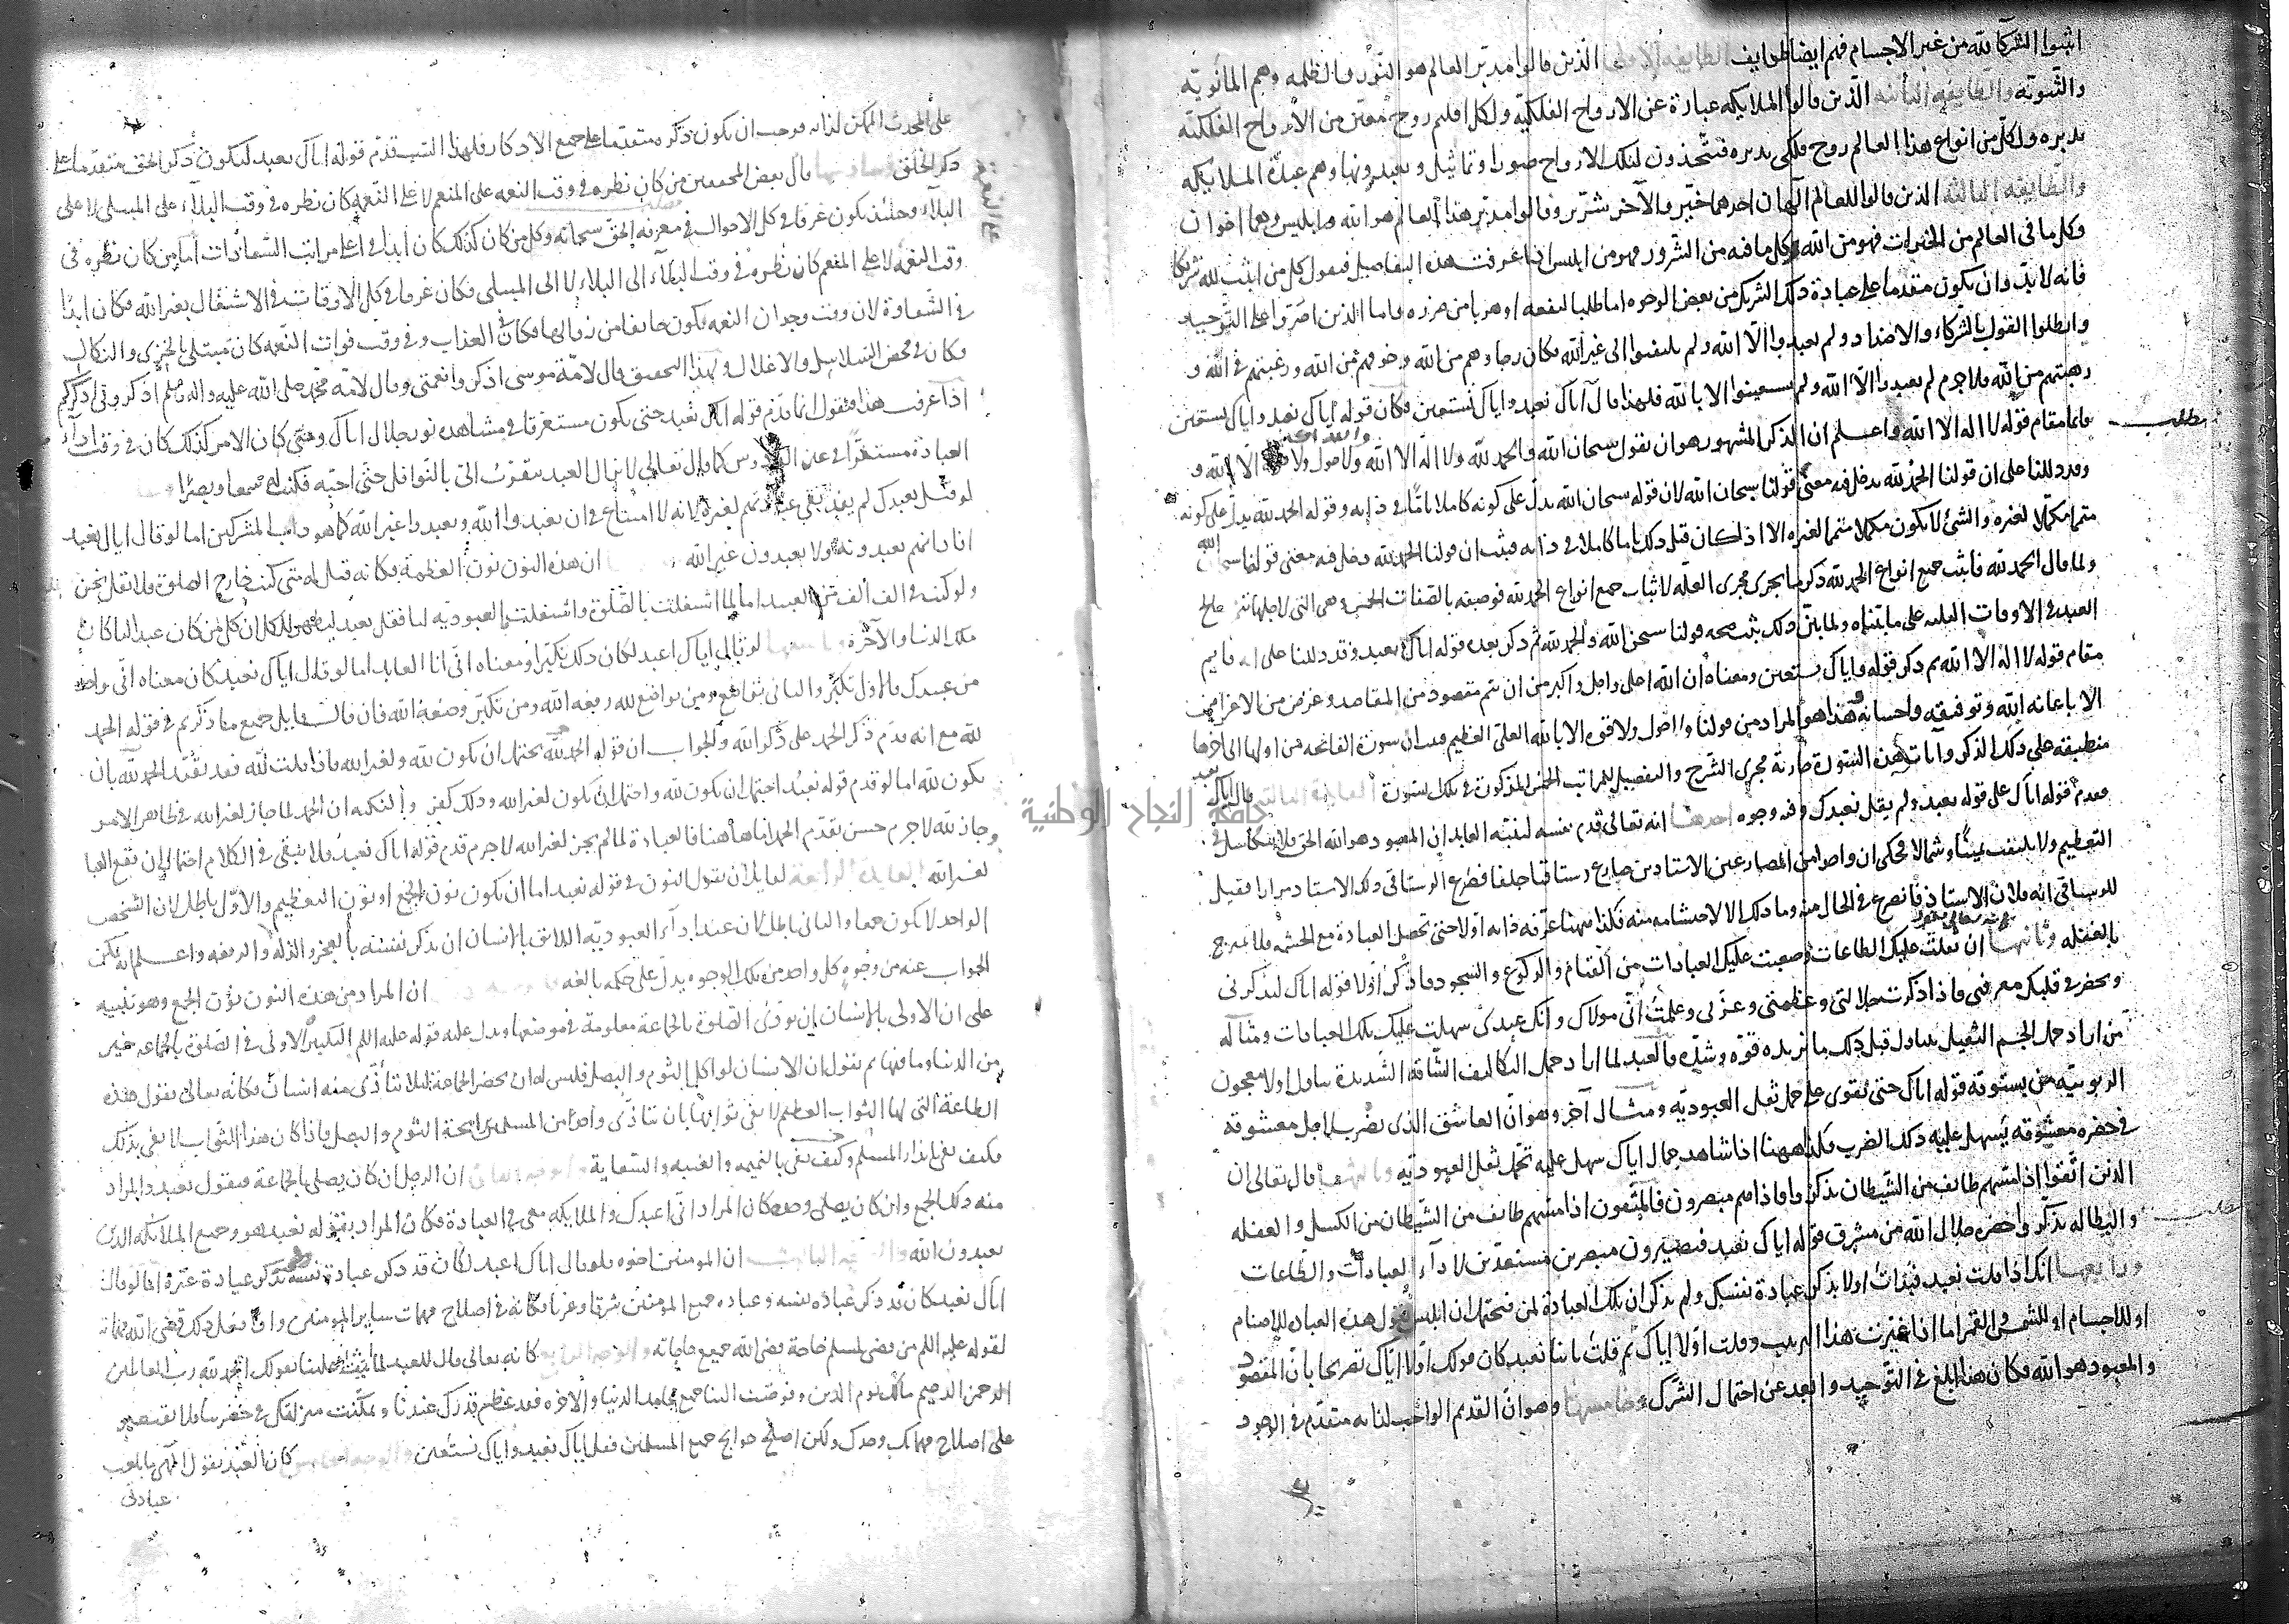 اثبتوا الشركا لله من غير الاجسام فهم ايضا طوايف الطايفة الاولى الذين قالوا مدبر العالم هو النور والظلمه وهم المانوية
والثنوية والطايفة الثانية الذين قالوا الملايكه عبارة عن الارواح الفلكية ولكل اقليم روح معين من الارواح الفلكية
يدبره ولكل من انواع هذا العالم روح فلكى يدبره فيتخذون لتلك الارواح صورا وتماثيل ويعبدونها وهم عبدة الملايكه
والطايفه الثالثه الذين قالوا للعالم الهان احدهما خير والآخر شرير وقالوا مدبر هذا العالم هو الله وابليس وهما اخوان
وكل ما فى العالم من الخيرات فهو من الله وكل ما فيه من الشرور فهو من ابليس اذا عرفت هذه التفاصيل فنقول كل من اثبت لله شريكا
فانه لا بد وان يكون مقدما على عبادة ذلك الشريك من بعض الوجوه اما طلبا لنفعه او هربا من ضرره واما الذين اصروا على التوحيد
وابطلوا القول بالشركاء والاضداد ولم يعبدوا الا الله ولم يلتفتوا الى غير الله فكان رجاوهم من الله وخوفهم من الله ورغبتهم فى الله و
رهبتهم من الله فلا جرم لم يعبدوا الا الله ولم يستعينوا الا بالله فلهذا قال اياك نعبد واياك نستعين فكان قوله اياك نعبد واياك نستعين
قايما مقام قوله لا اله الا الله واعلم ان الذكر المشهور هو ان نقول سبحان الله والحمد لله ولا اله الا الله ولا حول ولا قوة الا بالله و
وقد دللنا على ان قولنا الحمد لله يدخل فيه معنى قولنا سبحان الله لان قوله سبحان الله يدل على كونه كاملا تاما فى ذاته وقوله الحمد لله يدل على كونه
متمما مكملا لغيره والشئ لا يكون مكملا متمما لغيره الا اذا كان قبل ذلك تاما كاملا فى ذاته فثبت ان قولنا الحمد لله دخل فيه معنى قولنا سبحان الله
ولما قال الحمد لله فاثبت جميع انواع الحمد لله ذكر ما يجرى مجرى العلة لاثبات جميع انواع الحمد لله فوصفه بالصفات الخمس وهى التى لاجلها تتم مصالح
العبد فى الاوقات الثلثه على ما بيناه ولما بين ذلك ثبت صحه قولنا سبحن الله والحمد لله ثم ذكر بعده قوله اياك نعبد وقد دللنا على انه قايم
مقام قوله لا اله الا الله ثم ذكر قوله واياك نستعين ومعناه ان الله اعلى واجل واكبر من ان يتم مقصود من المقاصد وغرض من الاغراض
الا باعانه الله وتوفيقه واحسانه وهذا هو المراد من قولنا ولا حول ولا قوه الا بالله العلى العظيم فثبت ان سورة الفاتحه من اولها الى آخرها
منطبقه على ذلك الذكر وآيات هذه السورة جارية مجرى الشرح والتفصيل للمراتب الخمس المذكورة فى تلك السورة الفايدة الثالثة قال اياك نعبد
فقدم قوله اياك على قوله نعبد ولم يقل نعبدك وفيه وجوه احدها انه تعالى قدم نفسه لينبه العابد ان المعبود هو الله الحق فلا يتكاسل فى
التعظيم ولا يلتفت يمينا وشمالا يحكى ان واحدا من المصارعين الاستادين صارع رستاقيا جلفا فصرع الرستاقى ذلك الاستاد مرارا فقيل
للرستاقى انه فلان الاستاذ فانصرع فى الحال منه وما ذلك الا لاحتشامه منه فكذا ههنا عرفه ذاته اولا حتى تحصل العبادة مع الحشمه فلا تمتزج
بالغفله وثانيها ان ثقلت عليك الطاعات وصعبت عليك العبادات من القيام والركوع والسجود فاذكر اولا قوله اياك لتذكرنى
وتحضر فى قلبك معرفتى فاذا ذكرت جلالتى وعظمتى وعزتى وعلمت انى مولاك وانك عبدى سهلت عليك تلك العبادات ومثاله
من اراد حمل الجسم الثقيل تناول قبل ذلك ما يزيده قوة وشدة فالعبد لما اراد حمل التكاليف الشاقة الشديدة تناول اولا معجون
الربوبيه من بستوقة قوله اياك حتى يقوى على حمل ثقل العبوديه ومثال آخر وهو ان العاشق الذى يضرب لاجل معشوقه
فى حضره معشوقه يسهل عليه ذلك الضرب فكذا ههنا اذا شاهد جمال اياك سهل عليه تحمل ثقل العبوديه وثالثها قال تعالى ان
الذين اتقوا اذا مسهم طائف من الشيطان تذكروا فاذا هم مبصرون فالمتقون اذا مسهم طائف من الشيطان من الكسل والغفله
والبطاله تذكروا حضره جلال الله من مشرق قوله اياك نعبد فيصيرون مبصرين مستعدين لاداء العبادات والطاعات
ورابعها انك اذا قلت نعبد فبدات اولا بذكر عبادة نفسك ولم تذكر ان تلك العبادة لمن فيحتمل ان ابليس يقول هذه العباده للاصنام
او للاجسام او للشمس والقمر اما اذا غيرت هذا الترتيب وقلت اولا اياك ثم قلت ثانيا نعبد كان قولك اولا اياك تصريحا بان المقصود
والمعبود هو الله فكان هذا ابلغ فى التوحيد وابعد عن احتمال الشرك وخامسها وهو ان القديم الواجب لذاته متقدم فى الوجود
على المحدث الممكن لذاته فوجب ان يكون ذكره متقدما على جميع الاذكار فلهذا السبب قدم قوله اياك نعبد ليكون ذكر الحق متقدما على
ذكر الخلق وسادسها قال بعض المحققين من كان نظره فى وقت النعمه على المنعم لا على النعمه كان نظره فى وقت البلاء على المبلى لا على
البلاء وحينئذ يكون غرقا فى كل الاحوال فى معرفه الحق سبحانه وكل من كان كذلك كان ابدا فى اعلى مراتب السعادات اما من كان نظره فى
وقت النعمه لا على المنعم كان نظره فى وقت البلاء الى البلاء لا الى المبلى فكان غرقا فى كل الاوقات فى الاشتغال بغير الله فكان ابدا
فى الشقاوة لان وقت وجدان النعمه يكون خائفا من زوالها فكان فى العذاب وفى وقت فوات النعمه كان مبتلى بالخزى والنكال
فكان فى محض السلاسل والاغلال ولهذا التحقيق قال لامة موسى اذكروا نعمتى وقال لامة محمد صلى الله عليه واله وسلم اذكرونى اذكركم
اذا عرفت هذا فنقول انما قدم قوله اياك نعبد حتى يكون مستغرقا فى مشاهده نور جلال اياك ومتى كان الامر كذلك كان فى وقت اداء
العبادة مستقرا فى عين الفردوس كما قال تعالى لا يزال العبد يتقرب الى بالنوافل حتى احبه فكنت له سمعا وبصرا
لو قيل نعبدك لم يفد نفى عبادتهم لغيره لانه لا امتناع فى ان يعبدوا الله ويعبدوا غير الله كما هو داب المشركين اما لو قال اياك نعبد
افاد انهم يعبدونه ولا يعبدون غير الله ان هذه النون نون العظمة فكانه قيل له متى كنت خارج الصلوة فلا تقل نحن
ولو كنت فى الف الف من العبيد اما لما اشتغلت بالصلوة واشتغلت بالعبودية لنا فقل نعبد ليظهر للكل ان كل من كان عبدا لنا كان
ملك الدنيا والآخره لو قال اياك اعبد لكان ذلك تكبرا ومعناه انى انا العابد اما لو قال اياك نعبد كان معناه انى واحد
من عبيدك فالاول تكبر والثانى تواضع ومن تواضع لله رفعه الله ومن تكبر وضعه الله فان قال قايل جميع ما ذكرتم فى قوله الحمد
لله مع انه قدم ذكر الحمد على ذكر الله والجواب ان قوله الحمد لله يحتمل ان يكون لله ولغير الله فاذا قلت لله فقد تقيد الحمد لله بان
يكون لله اما لو قدم قوله نعبد احتمل ان يكون لله واحتمل ان يكون لغير الله وذلك كفر والنكته ان الحمد لما جاز لغير الله فى ظاهر الامر
وجاز لله لا جرم حسن تقديم الحمد اما هاهنا فالعبادة لما لم يجز لغير الله لا جرم قدم قوله اياك نعبد فلا يبقى فى الكلام احتمال ان تقع العبا
لغير الله الفايدة الرابعه لقايل ان يقول النون فى قوله نعبد اما ان يكون نون الجمع او نون التعظيم والاول باطل لان الشخص
الواحد لا يكون جمعا والثانى باطل لان عند اداء العبوديه اللايق بالانسان ان يذكر نفسه بالعجز والذله واعلم انه يمكن
الجواب عنه من وجوه كل واحد من تلك الوجوه يدل على حكمه بالغه ان المراد من هذه النون نون الجمع وهو تنبيه
على ان الاولى بالانسان ان يؤدى الصلوة بالجماعة معلومة فى موضعها ويدل عليه قوله عليه السلم التكبيرة الاولى فى الصلوة بالجماعه خير
من الدنيا وما فيها ثم نقول ان الانسان لو اكل الثوم والبصل فليس له ان يحضر الجماعة لئلا يتأذى منه انسان فكانه تعالى يقول هذه
الطاعة التى لها الثواب العظيم لا يفى ثوابها بان يتاذى واحد من المسلمين برايحة الثوم والبصل فاذا كان هذا الثواب لا يفى بذلك
فكيف يفى بايذاء المسلم وكيف يفى بالنميمه والغيبه والسعاية ان الرجل ان كان يصلى بالجماعة فيقول نعبد والمراد
منه ذلك الجمع وان كان يصلى وحده كان المراد انى اعبدك والملايكه معى فى العبادة فكان المراد بقوله نعبد هو وجميع الملائكه الذين
يعبدون الله ان المومنين اخوه فلو قال اياك اعبد لكان قد ذكر عبادة نفسه ولم يذكر عبادة غيره اما لو قال
اياك نعبد كان قد ذكر عباده نفسه وعباده جميع المومنين شرقا وغربا فكانه فى اصلاح مهمات ساير المومنين واذا فعل ذلك قضى الله مهماته
لقوله عليه السلم من قضى لمسلم حاجة قضى الله جميع حاجاته كانه تعالى قال للعبد لما اثنيت علينا بقولك الحمد لله رب العالمين
الرحمن الرحيم مالك يوم الدين وفوضت الينا جميع محامد الدنيا والاخره فقد عظم قدرك عندنا وتمكنت منزلتك فى حضرتنا فلا تقتصر
على اصلاح مهماتك وحدك ولكن اصلح حوايج جميع المسلمين فقل اياك نعبد واياك نستعين كان العبد يقول الهى ما بلغت
عبادتى
جامعة النجاح الوطنية